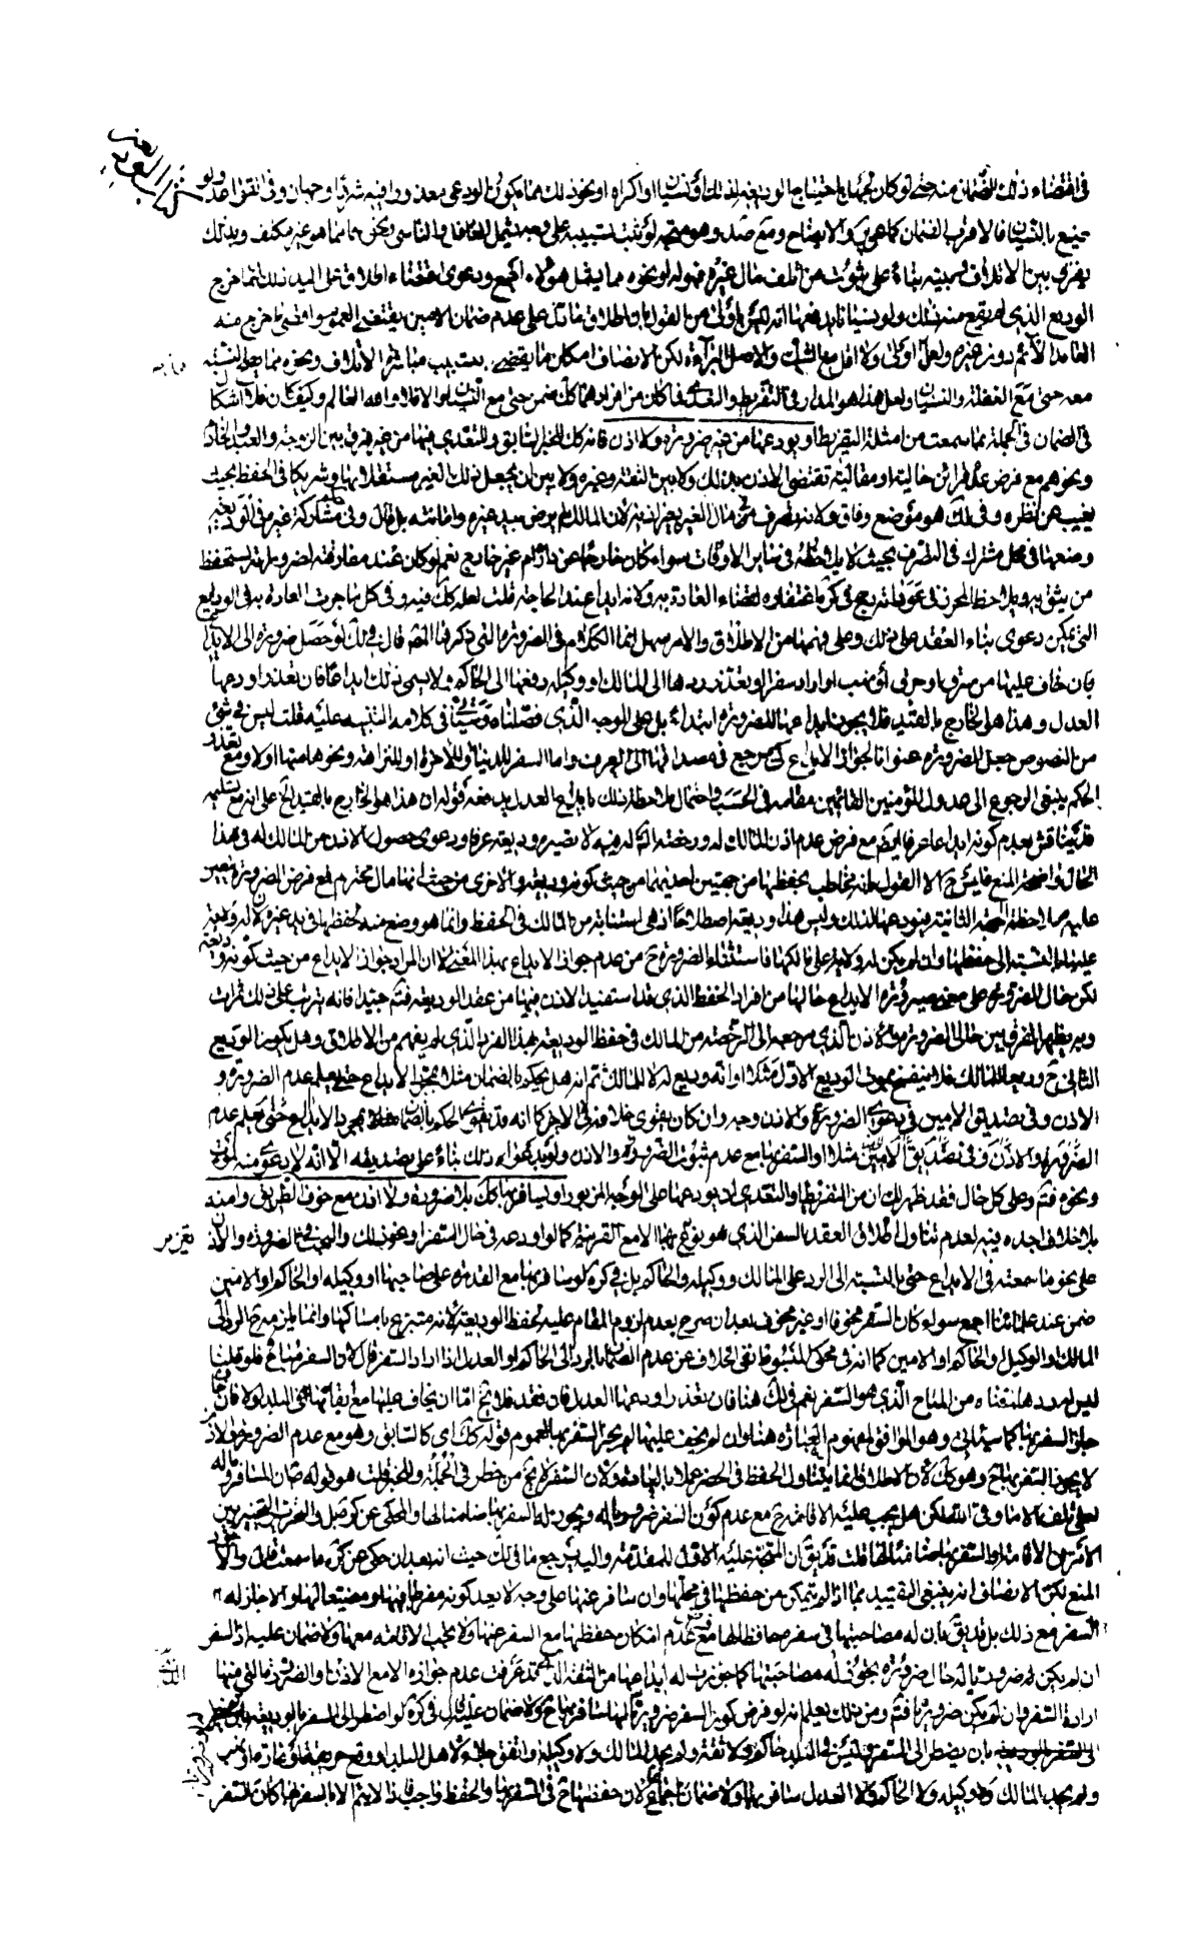 كتاب الوديعة
في اقتضاء ذلك الضمان منه حتى لو كان
ضيع بالنسيان فالاقرب الضمان كما عن والايضاح ومع صد وهو متجه لو ثبت تسبيبه على وجه يشمل الغافل والناسي ونحوهما مما هو غير مكلف وبذلك
يفرق بين الاتلاف وتسبيبه بناء على ثبوت من اتلف مال غيره فهو له ونحوه مما يشمل هؤلاء اجمع ودعوى اقتضاء اطلاق على اليد ذلك انما خرج
الوديع الذي لم يقع منه ذلك ولو نسيانا يدفعها انه ليس باولى من القول بان اطلاق ما دل على عدم ضمان الامين يقتضي العموم
العامد الآثم دون غيره ولعله اولى ولا اقل مع الشك والاصل البرائة لكن الانصاف امكان ما يقتضي بتسبيب مباشرة الاتلاف ونحوه مما
معه حتى مع الغفلة والنسيان ولعل هذا هو المدار في التفريط والتعدي فما كان من افرادهما كك ضمن حتى مع النسيان والا فلا والله العالم وكيف كان فلا اشكال
في الضمان في الجملة بما سمعت من امثلة التفريط او يودعها من غير ضرورة ولا اذن فانه كك للخبر السابق وللتعدي فيها من غير فرق بين الزوجة والعبد والخادم
ونحوهم مع فرض عدم قرائن حالية او مقالية تقتضي الاذن بذلك ولا بين الثقة وغيره ولا بين ان يجعل ذلك الغير مستقلا بها وشريكا في الحفظ بحيث
يغيب عن نظره وفي لك هو موضع وفاق ولانه تصرف في مال الغير بغير اذنه لان المالك لم يرض بيد غيره وامانته بل قال وفي مشاركة غيره في التوديع
وضعها في محل مشترك في التصرف بحيث لا يلاحظها في سائر الاوقات سواء كان خارجا عن داره ام غير خارج نعم لو كان عند مفارقته لضروراته يستحفظ
من يثق به ويلاحظ المحرز في عوداته رجع في كرة اغتفاره لقضاء العادة به ولانه ايداع عند الحاجة قلت لعله كك فيه وفي كل ما جرت العادة به في الودايع
التي يمكن دعوى بناء العقد على ذلك وعلى فهمها من الاطلاق والامر سهل انما الكلام في الضرورة التي ذكرها المص قال في لك لو حصل ضرورة الى الايداع
بان خاف عليها من سرق او حرق او نهب او اراد سفرا وتعذر ردها الى المالك او وكيله دفعها الى الحاكم ولا يسمى ذلك ايداعا فان تعذر اودعها
العدل وهذا هو الخارج بالقيد فلا يجوز ايداعها للضرورة ابتداء بل على الوجه الذي فصلناه وسيأتي في كلامه التنبيه عليه قلت ليس في شئ
من النصوص جعل الضرورة عنوانا لجواز الايداع كي يرجع في مصداقها الى العرف واما السفر للدنيا او للاخرة او للنزاهة ونحوها منها اولا ومع تعذر
الحكم ينبغي الرجوع الى عدول المؤمنين القائمين مقامه في الحسب واحتمال ملاحظة ذلك بايداع العدل يدفعه قوله ان هذا هو الخارج بالقيد نعم على انه مع تسليمه
قد يناقش بعدم كونه ايداعا عرفا مع فرض عدم اذن المالك له ورخصته اياه فيه لا تصير وديعة عرفا ودعوى حصول الاذن من المالك له في هذا
الحال واضحة المنع فليس ح الا القول بانه مخاطب بحفظها من جهتين احديهما من حيث كونه وديعة والاخرى من حيث انها مال محترم فمع فرض الضرورة يتعين
عليه ملاحظة الجهة الثانية فيودعها لذلك وليس هذا وديعة اصطلاحا اذ هي استنابة من المالك في الحفظ وانما هو وضع منه لحفظها في يد غيره
بالنسبة الى حفظها وان لم يكن له ولاية على مالكها فاستثناء الضرورة ح من عدم جواز الايداع بهذا المعنى لا ان المراد جواز الايداع من حيث كونه وديعة
لكن حال الضرورة على معنى صيرورة الايداع حالها من افراد الحفظ الذي قد استفيد الاذن فيها من عقد الوديعة فتم جيدا فانه يترتب على ذلك ثمرات
وبه يظهر الفرق بين حالي الضرورة والاذن الذي مرجعه الى الرخصة من المالك في حفظ الوديعة بهذا الفرد الذي لم يفهم من الاطلاق وهل يكون الوديع
الثاني ح وديعا للمالك فلا ينفسخ بموت الوديع الاول مثلا او انه وديع له لا المالك ثم انه هل يحكم بالضمان مثلا بمجرد الايداع حتى يعلم عدم الضرورة و
الاذن وفي تصديق الامين في دعوى الضرورة والاذن وجه وان كان يقوى خلافه في الاخير كما انه قد يقوى الحكم بالضمان بمجرد الايداع حتى يعلم عدم
الضرورة والاذن وفي تصديق الامين مثلا او السفر بها مع عدم ثبوت الضرورة والاذن ولو بدعواه ذلك بناء على تصديقه الا انه لا بد
ونحوه فتم وعلى كل حال فقد ظهر لك ان من التفريط والتعدي ان يودعها على الوجه المزبور او يسافر بها كك بلا ضرورة ولا اذن مع خوف الطريق وامنه
بلا خلاف اجده فيه لعدم تناول اطلاق العقد السفر الذي هو تغرير بها الا مع القرينة كما لو اودعه في حال السفر او نحو ذلك والبحث في الضرورة والاذن
على نحو ما سمعته في الايداع حتى بالنسبة الى الرد على المالك ووكيله والحاكم بل في كرة لو سافر بها مع القدرة على صاحبها او وكيله او الحاكم او الامين
ضمن عند علمائنا اجمع سواء كان السفر مخوفا او غير مخوف بعد ان صرح بعدم لزوم المقام عليه لحفظ الوديعة لانه متبرع بامساكها وانما يلزمه ح الرد الى
المالك او الوكيل او الحاكم او الامين كما انه في محكي المبسوط نفى الخلاف عن عدم الضمان بالرد الى الحاكم او العدل اذا اراد السفر قال لان السفر مباح فلو قلنا
ليس له ردها منعناه من المباح الذي هو السفر نعم في لك هنا فان تعذر اودعها العدل فان فقد فلا يخ اما ان يخاف عليها مع بقائها في البلد او لا فان خاف
جاز السفر بها كما سيأتي وهو الموافق لمفهوم العبارة هنا وان لم يخف عليها لم يجز السفر بها لعموم قوله كك اي كالسابق وهو مع عدم الضرورة والاذن
لا يجوز السفر بها ح وهو كك لان الاطلاق انما يتناول الحفظ في الحضر عملا بالعادة ولان السفر لا يخ من خطر في الجملة وللخبر قلت هو قوله صان المسافر وماله
لعلى تلف الا ما وقى الله لكن هل يجب عليه الاقامة ح مع عدم كون السفر ضروريا له ويجوز له السفر بها ضامنا لها والمحكي عن كرة قبل والتحرير التخيير بين
الامرين الاقامة والسفر بها ضامنا لها قلت قد يق ان المتجه عليه الاول للمقدمة واليه يرجع ما في لك حيث انه بعد ان حكى عن كرة ما سمعت قال والا
المنع لكن الانصاف انه ينبغي التقييد بما اذا لم يتمكن من حفظها في محلها وان سافر عنها على وجه لا يعد كونه مفرطا فيها او مضيعا لها والا جاز له
السفر مع ذلك بل قد يق بان له مصاحبتها في سفره حافظا لها مع عدم امكان حفظها مع السفر عنها ولا يجب الاقامة معها ولا ضمان عليه اذ السفر
ان لم يكن له ضروريا له حال ضرورة يجوز له مصاحبتها كما جوزت له ايداعها من الثقة اللهم قد عرفت عدم جوازه الا مع الاذن او الضرورة التي منها
ارادة السفر وان لم يكن ضروريا فتم ومن ذلك يعلم انه لو فرض كون السفر ضروريا لها سافر بها ح ولا ضمان عليه بل في كرة لو اضطر الى السفر بالوديعة
بان يضطر الى السفر وليس في البلد حاكم ولا ثقة ولم يجد المالك ولا وكيله او اتفق جلاء لاهل البلد او وقع حريق او غارة او نهب
ولم يجد المالك ولا وكيله ولا الحاكم ولا العدل سافر بها ولا ضمان اجماعا لان حفظها ح في السفر بها والحفظ واجب فاذا لم يتم الا بالسفر بها كان السفر